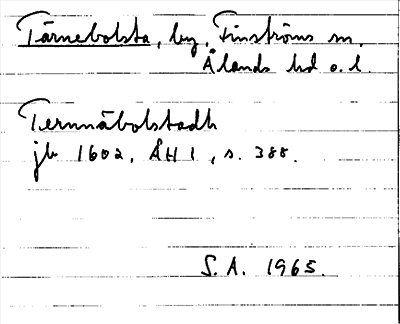 Tärnebolsta, by, Finströms sn.
Ålands hd o. l.
Ternnäbolstadh
jb 1602, ÅH 1, s. 388.
S. A. 1965.